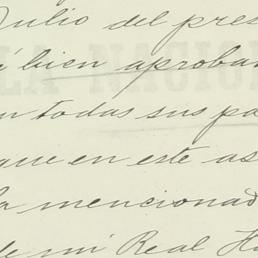 Julio del pres
bien aprobar
n todas sus pa
que en este as
la mencionad
de mi Real Ha